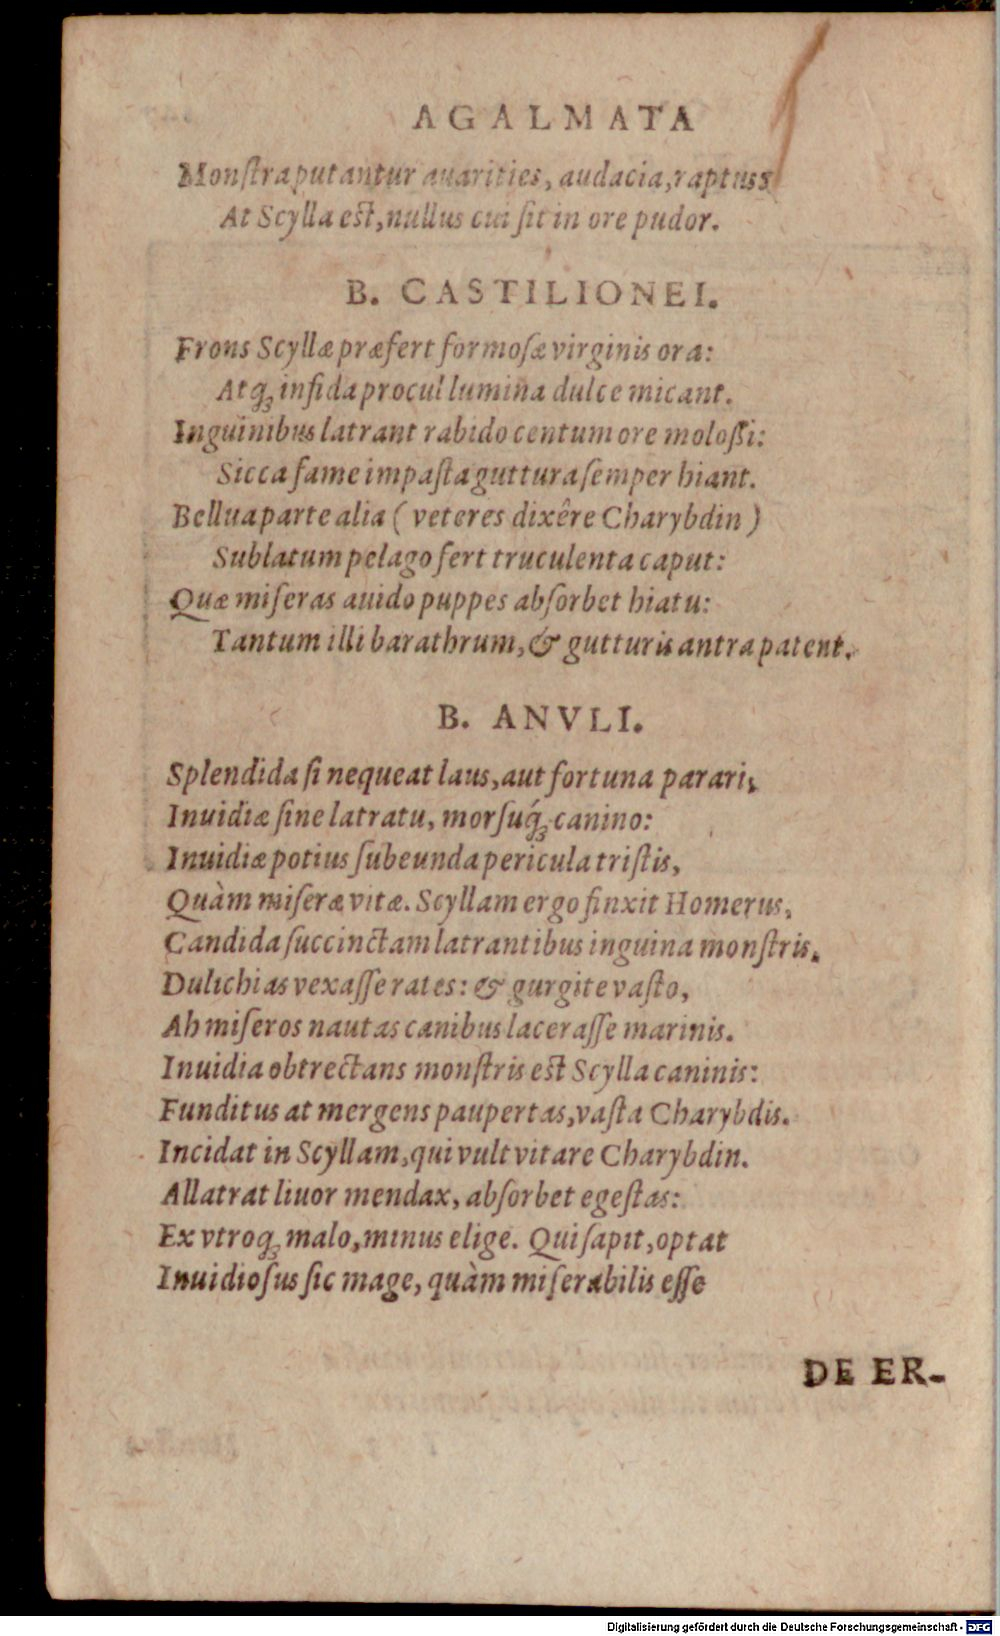 AGALMATA
Monſtra putantur auarities, audacia, raptus:
At Scylla est, nullus cui ſit in ore pudor.
B. CASTILIONEI.
Frons Scyllæ præfert formoſæ virginis ora:
Atq́ꝫ infida procul lumina dulce micant.
Inguinibus latrant rabido centum ore moloſſi:
Sicca fame impaſta guttura ſemper hiant.
Bellua parte alia ( veteres dixêre Charybdin )
Sublatum pelago fert truculenta caput:
Quæ miſeras auido puppes abſorbet hiatu:
Tantum illi barathrum, & gutturis antra patent.
B. ANVLI.
Splendida ſi nequeat laus, aut fortuna parari,
Inuidiæ ſine latratu, morſuq́ꝫ canino:
Inuidiæ potius ſubeunda pericula triſtis,
Quàm miſeræ vitæ. Scyllam ergo finxit Homerus,
Candida ſuccinctam latrantibus inguina monſtris,
Dulichias vexaſſe rates: & gurgite vaſto,
Ah miſeros nautas canibus laceraſſe marinis.
Inuidia obtrectans monſtris est Scylla caninis:
Funditus at mergens paupertas, vaſta Charybdis.
Incidat in Scyllam, qui vult vitare Charybdin.
Allatrat liuor mendax, abſorbet egeſtas:
Ex vtroqꝫ malo, minus elige. Qui ſapit, optat
Inuidioſus ſic mage, quàm miſerabilis eſſe
DE ER-
Digitalisierung gefördert durch die Deutsche Forschungsgemeinschaft - DFG